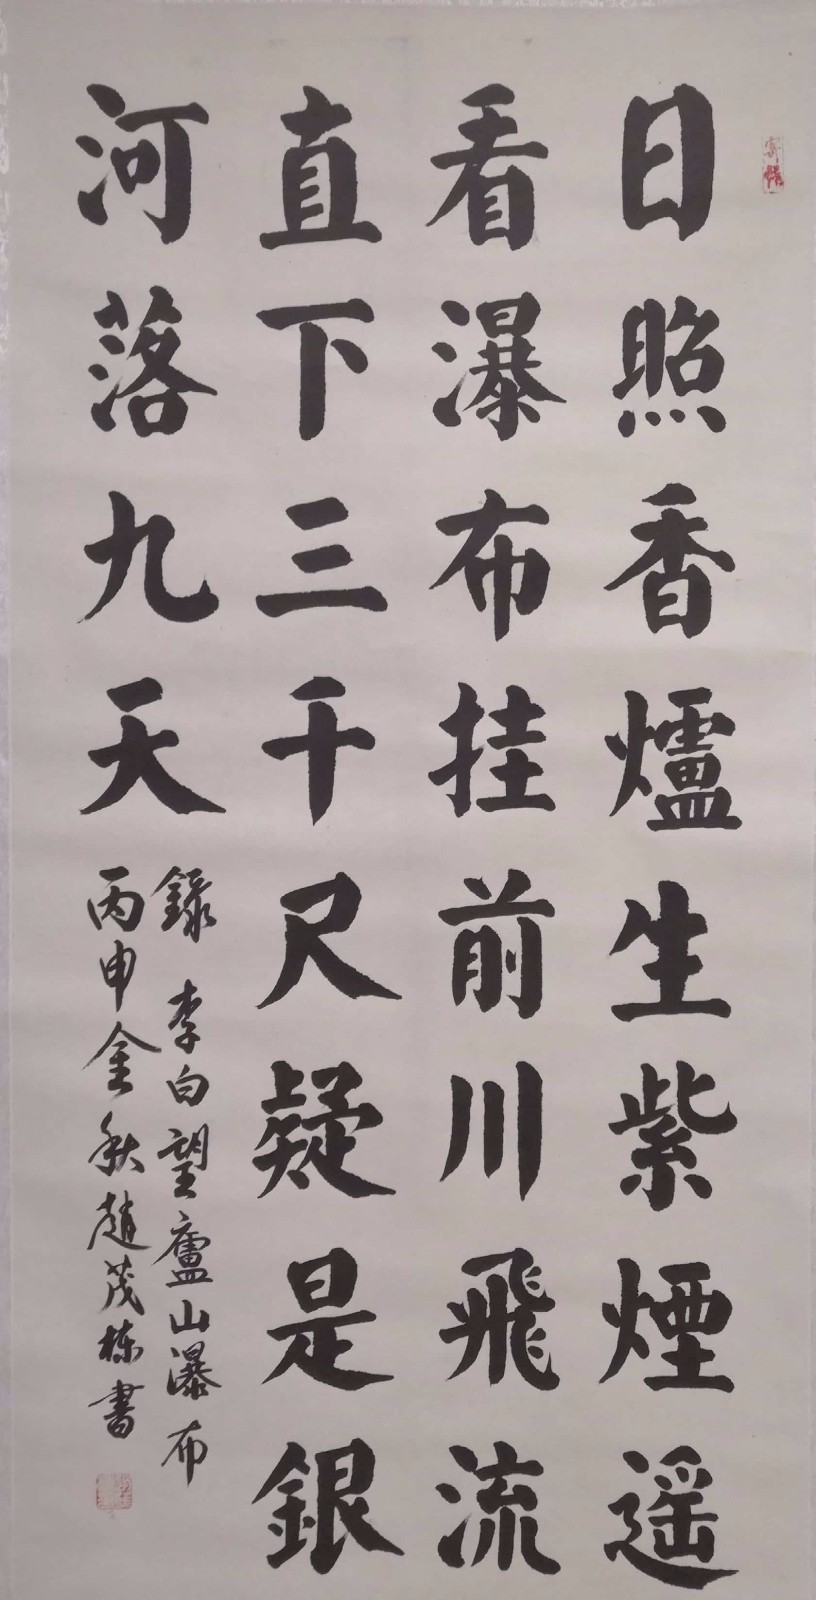 日照香爐生紫煙遥
看瀑布挂前川飛流
直下三千尺疑是銀
河落九天
錄李白望廬山瀑布
丙申金秋趙茂棟書